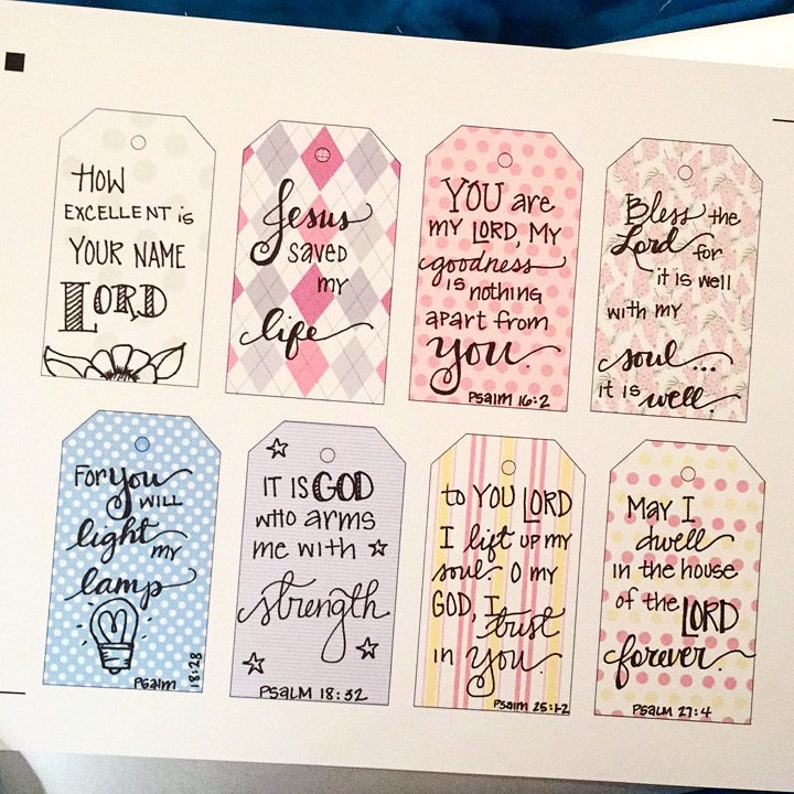 HOW
EXCELLENT is
YOUR NAME
LORD
Jesus
saved
my
life
YOU are
my LORD, MY
goodness
is nothing
apart from
you.
Psalm 16:2
Bless the
Lord for
it is well
with my
soul...
it is well.
For you
will
light
my
lamp
Psalm 18:28
IT IS GOD
who arms
me with
strength
PSALM 18:32
to YOU LORD
I lift up my
soul. O my
GOD, I
trust
in you.
Psalm 25:1-2
May I
dwell
in the house
of the LORD
forever.
PSALM 27:4